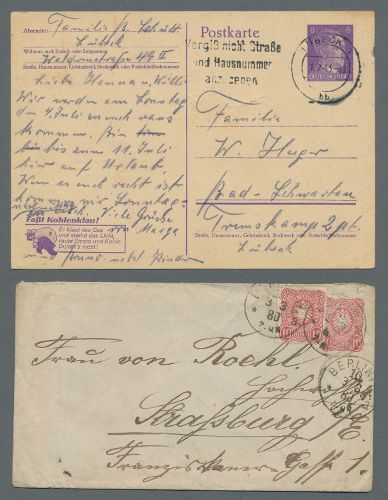 Absender: Familie B. Schütt
Lübeck
Wohnort, auch Zustell- oder Leitpostamt
Waldersestraße 49 II
Straße, Hausnummer, Gebäudeteil, Stockwerk oder Postschließfachnummer
Liebe Hanna u. Willi
Wir werden am Sonntag
den 4. Juli zu euch raus
kommen. Bin
bis zum 11. Juli
hier auf Urlaub.
Wenn es euch recht ist
kommen wir Sonntag
Viele Grüße
von Marga
und Kinder
Faßt Kohlenklau!
Er klaut das Gas
und stiehlt das Licht,
raubt Strom und Kohle.
Duldet's nicht!
Postkarte
Vergiß nicht Straße
und Hausnummer
anzugeben
LÜBECK
bb
6
6
DEUTSCHES REICH
Familie
W.
Bad-Schwartau
Lübeck
Straße, Hausnummer, Gebäudeteil, Stockwerk oder Postschließfachnummer
10
10
BERLIN
Frau von Roehl
Straßburg i/E
Gasse 1.